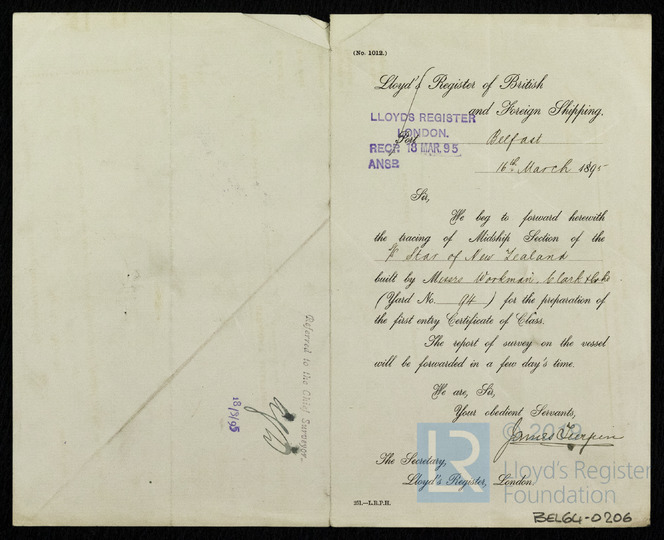 (No. 1012.)
Lloyd's Register of British
and Foreign Shipping.
LLOYDS REGISTER
LONDON.
RECD. 18 MAR. 95
ANSD
Port Belfast
16th March 1895
Sir,
We beg to forward herewith
the tracing of Midship Section of the
Star of New Zealand
built by Messrs Workman, Clark & Co
(Yard No. 94) for the preparation of
the first entry Certificate of Class.
The report of survey on the vessel
will be forwarded in a few day's time.
We are, Sir,
Your obedient Servants,
James Turpin
The Secretary,
Lloyd's Register, London.
251.—L.R.P.H.
Referred to the Chief Surveyor.
18/3/95
© 2019
LR
Lloyd's Register
Foundation
BEL64-0206